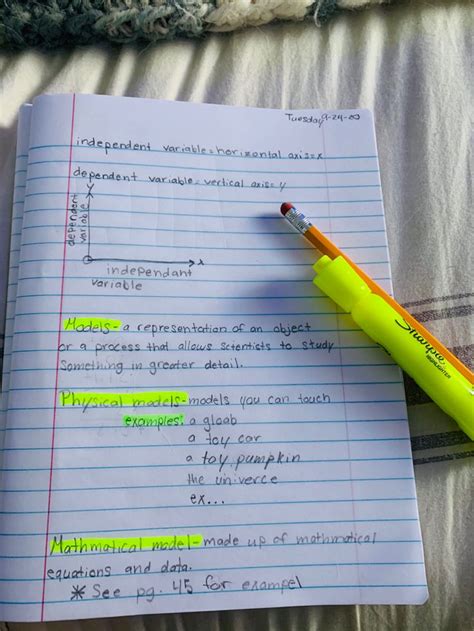 Tuesday 9-24-03
independent variable=horizontal axis=x
dependent variable=vertical axis=y
y
dependent
variable
x
independant
variable
Models- a representation of an object
or a process that allows scientists to study
something in greater detail.
Physical models-models you can touch
examples: a gloab
a toy car
a toy pumpkin
the univerce
ex...
Mathmatical model-made up of mathmatical
equations and data.
* See pg. 45 for exampel
Sharpie
HIGHLIGHTER